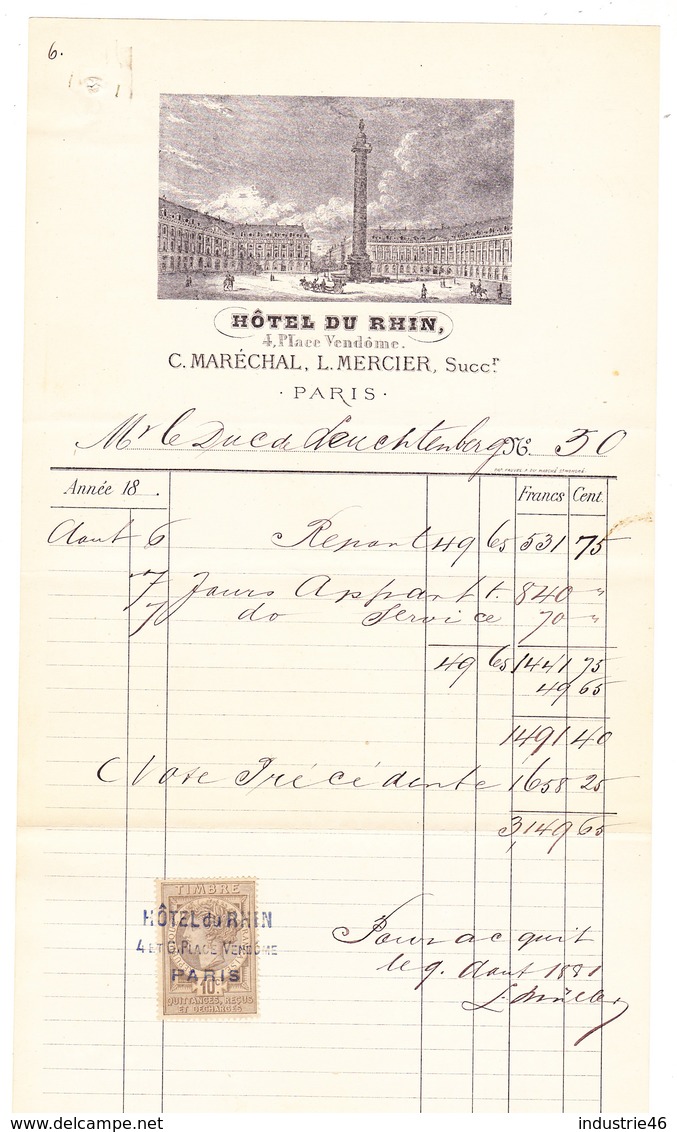 6.
HÔTEL DU RHIN,
4, Place Vendôme.
C. MARÉCHAL, L. MERCIER, Succr.
· PARIS ·
Mr le Duc de Leuchtenberg No. 50
Année 18 . Francs Cent.
Aout 6 Report 49 65 531 75
7 Jours Appart t. 840 "
7 do Service 70 "
49 65 1441 75
49 65
1491 40
Note Précédente 1658 25
3,149 65
TIMBRE
HÔTEL du RHIN
4 ET 6, PLACE VENDÔME
PARIS
10c
QUITTANCES, REÇUS
ET DÉCHARGES
Pour acquit
le 9. Aout 1881
delcampe.net
industrie46